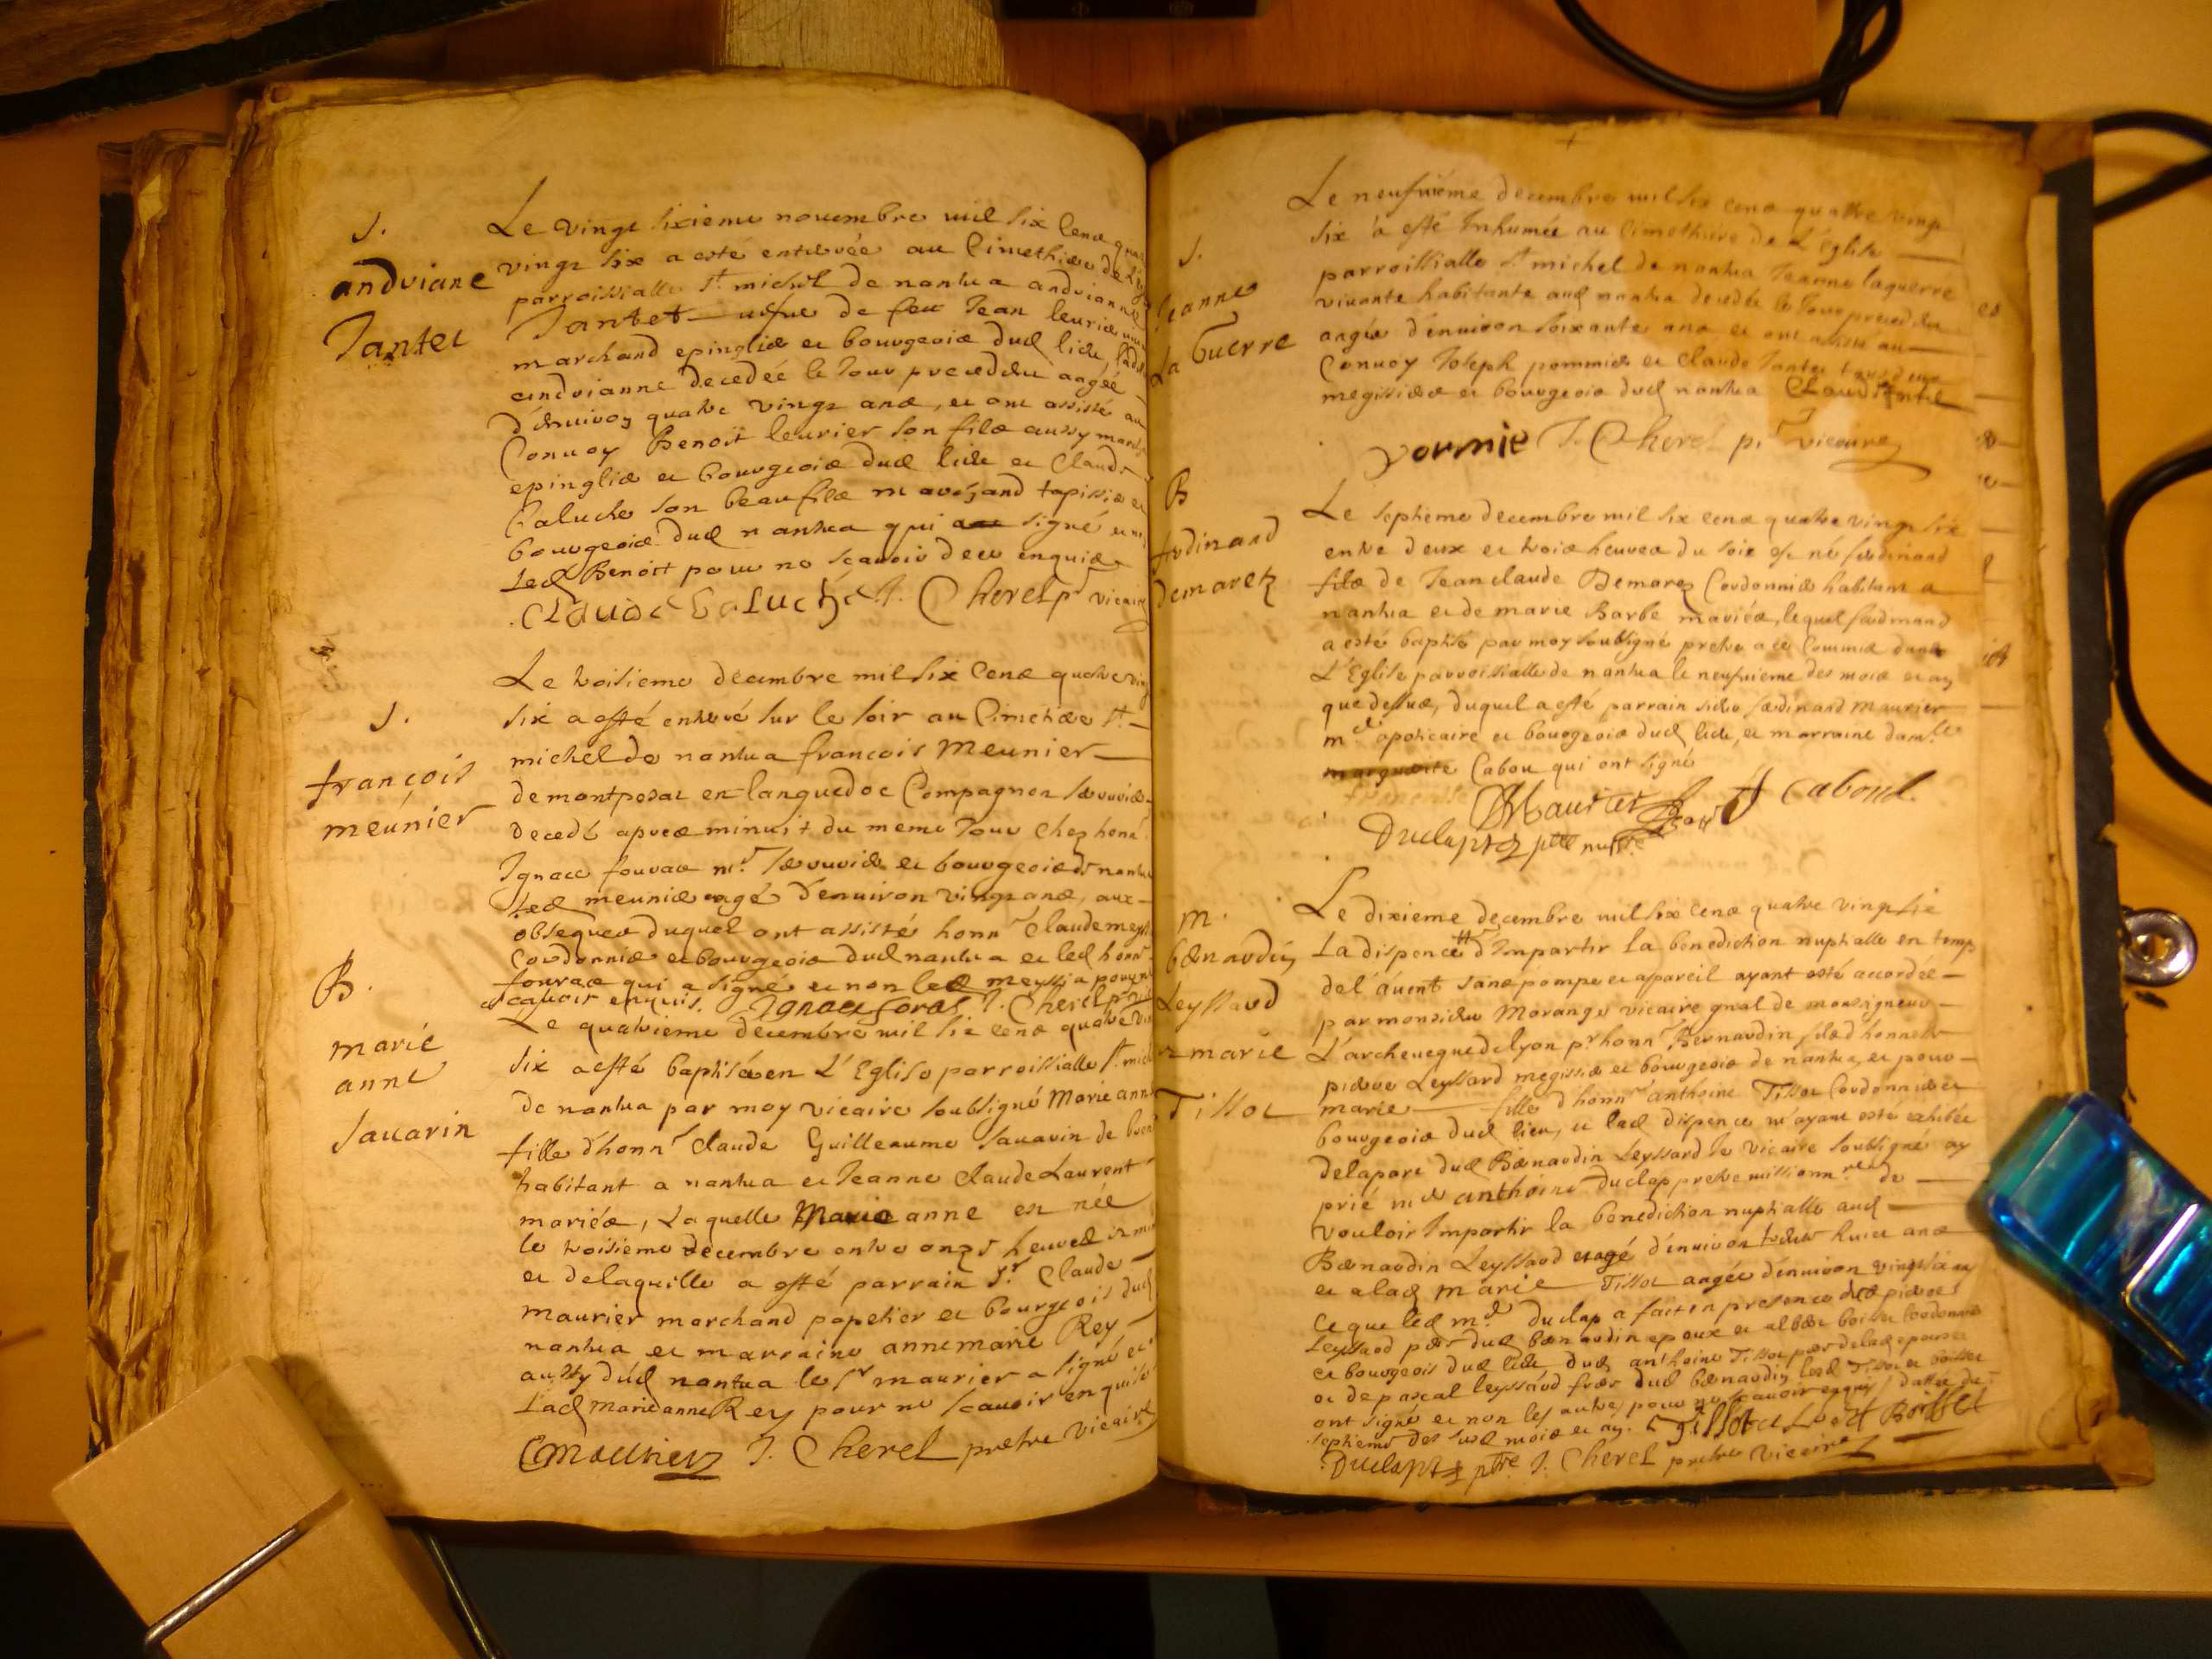 S.
andriane
Tantet
Le vingt sixieme novembre mil six cens qua
vingt six a esté enterrée au Cimethiere de
parroissialle St michel de nantua andrianne
Tantet vefve de feu Jean leurier
marchand epinglier et bourgeois dud lieu, lad
andrianne decedée le Jour precedent aagée
d'énuiron quatre vingt ans, et ont assisté au
Conuoy Benoit leurier son fils aussy march
epinglier et bourgeois dud lieu et Claude
Caluche son beaufils marchand tapissier et
bourgeois dud nantua qui signé et non
led Benoit pour ne scauoir de ce enquis
Claude Caluche J. Cherel pr vicaire
S.
françois
meunier
Le troisieme decembre mil six cens quatre ving
six a esté enterré sur le soir au Cimetiere St
michel de nantua francois Meunier
de montpesat en languedoc Compagnon serrurier
decedé apres minuit du meme Jour chez honé
Ignace fourace mr serrurier et bourgeois de nantua
Led meunier aagé d'enuiron vingt ans, aux
obseques duquel ont assistés honn Claude meyssia
Cordonnier et bourgeois dud nantua et led honn
fourace qui a signé et non led meyssia pour ne
scauoir enquis. J. Cherel pr vic
B.
marie
anne
Sauarin
Le quatrieme decembre mil six cens quatre vin
six a esté baptisée en L'Eglise parroissialle St mich
de nantua par moy vicaire soubsigné Marie anne
fille d'honn Claude Guilleaume Sauarin de
habitant a nantua et Jeanne Claude Laurent
mariés, Laquelle Marie anne est née
le troisieme decembre entre onze heures
et de laquelle a esté parrain Sr Claude
maurier marchand papetier et bourgeois dud
nantua et marraine anne marie Rey
aussy dud nantua le Sr maurier a signé et
Lad marie anne Rey pour ne scauoir enquise
Cmaurier J. Cherel pretre vicaire
S.
Jeanne
La Guerre
Le neufuieme decembre mil six cens quattre vingt
six a esté Inhumée au Cimethiere de L'Eglise
parroissialle St michel de nantua Jeanne laguerre
viuante habitante aud nantua decedée le Jour precedent
aagée d'enuiron soixante ans et ont assisté au
Conuoy Joseph pommier et Claude Tantet tous deux
megissiers et bourgeois dud nantua Claude Tantet
J. Cherel pr vicaire
B
ferdinand
demaretz
Le septieme decembre mil six cens quatre vingt six
entre deux et trois heures du soir est né ferdinand
fils de Jean claude Demarez Cordonnier habitant a
nantua et de marie Barbe mariés, lequel ferdinand
a esté baptisé par moy soubsigné pretre a ce Commis dans
L'Eglise parroissialle de nantua le neufuieme des mois et an
que dessus, duquel a esté parrain sieur ferdinand Maurier
md apoticaire et bourgeois dud lieu, et marraine damlle
marguerite Cabou qui ont signé
Maurier f Caboud.
Duclaptz ptre missre
m.
bernardin
Leyssard
marie
Tissot
Le dixieme decembre mil six cens quatre vingt six
La dispence d'Impartir la benediction nuptialle en temp
de l'áuent sans pompe et appareil ayant esté accordée
par monsieur Morange vicaire gnal de monseigneur
L'archeueque de lyon pr honn Bernardin fils d'honnete
pierre Leyssard megissier et bourgeois de nantua, et pour
marie fille d'honn anthoine Tissot Cordonnier et
bourgeois dud lieu, et lad dispence m'ayant esté exhibée
de la part dud Bernardin Leyssard Je vicaire soubsigné ay
prié mre anthoine duclap pretre missionnre de
vouloir Impartir la benediction nuptialle aud
Bernardin Leyssard aagé d'enuiron trente huict ans
et a lad marie Tissot aagée d'enuiron vingt six ans
Ce que led mre duclap a fait en presence de pierre
Leyssard pere dud bernardin epoux et albert boisset Cordonnier
et bourgeois dud lieu dud anthoine Tissot pere de lad epouse
et de pascal leyssard frere dud bernardin led Tissot et boisset
ont signé et non les autres pour ne scauoir enquis
septieme des susd mois et an. Tissot albert Boisset
Duclaptz ptre J. Cherel pretre vicaire